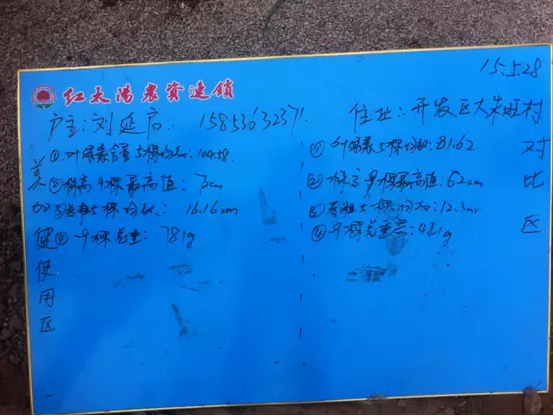 红太阳农资连锁
15.5.28
户主:刘延启. 15853632371.
住址:开发区大朱旺村
美加健使用区
①叶绿素含量5棵均数:104.58
②株高9棵最高值:73cm
③茎粗5棵均数:16.16mm
④9棵总重:781g
对比区
①叶绿素5棵均数:81.62
②株高9棵最高值:62cm
③茎粗5棵均数:12.3mm
④9棵总重:481g